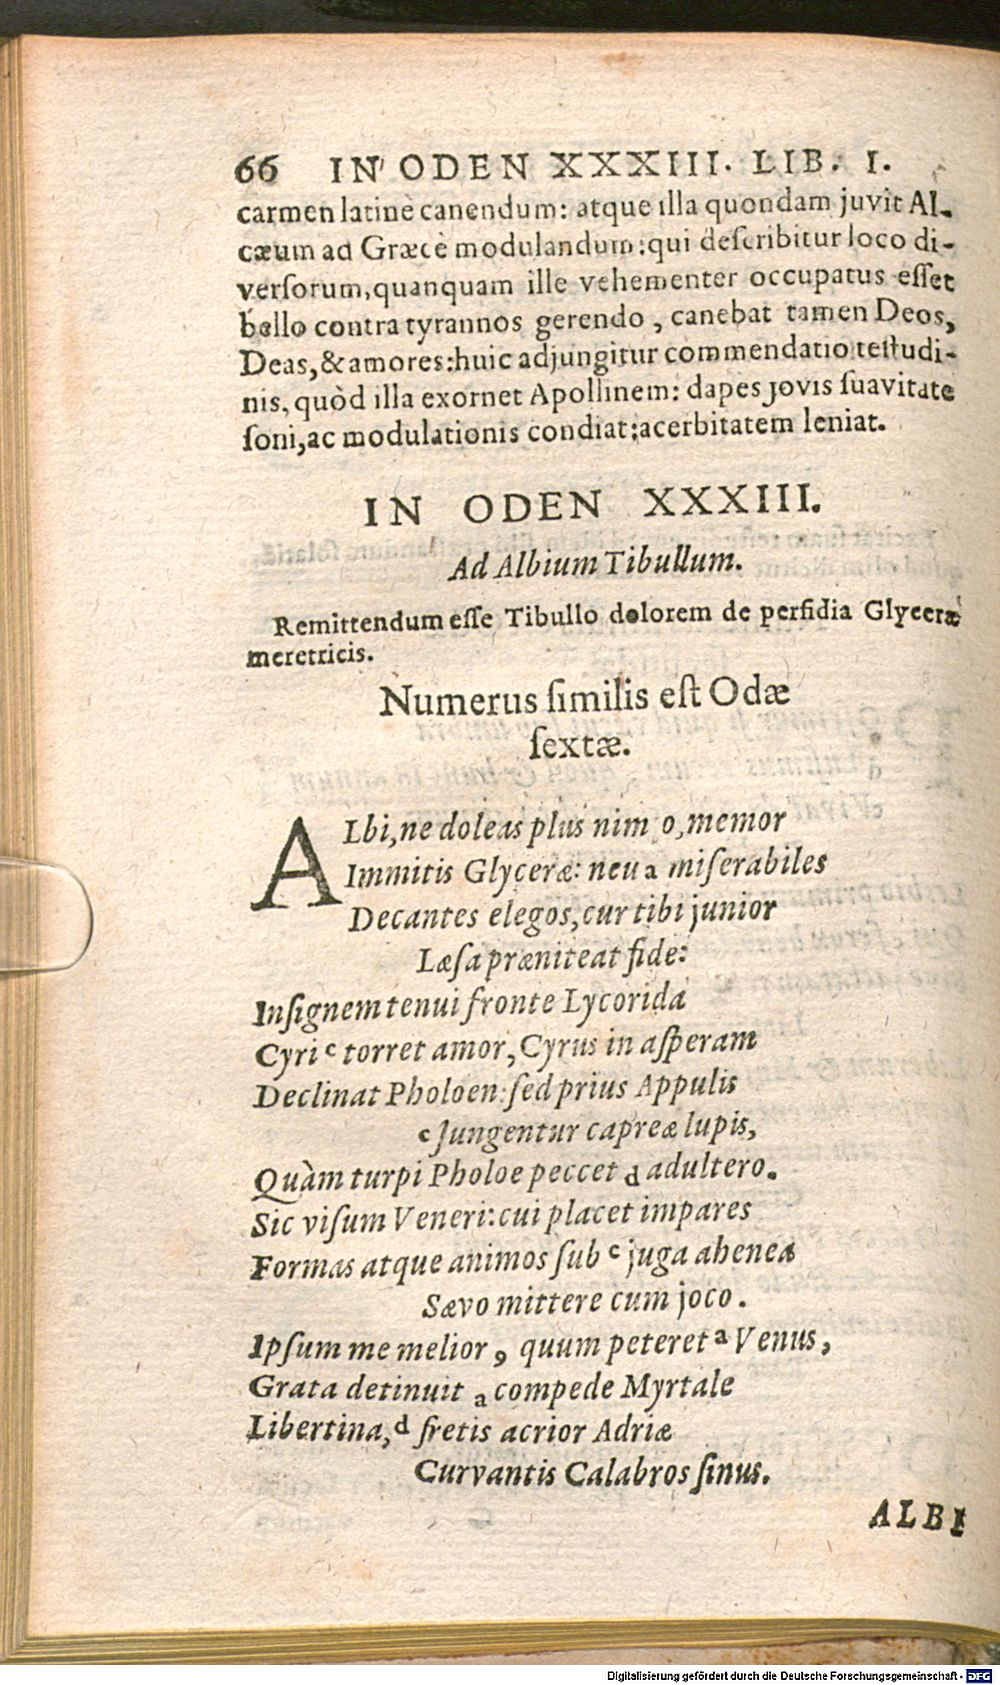 66 IN ODEN XXXIII. LIB. I.
carmen latinè canendum: atque illa quondam juvit Al-
cæum ad Græcè modulandum: qui describitur loco di-
versorum, quanquam ille vehementer occupatus esset
bello contra tyrannos gerendo, canebat tamen Deos,
Deas, & amores: huic adjungitur commendatio testudi-
nis, quòd illa exornet Apollinem: dapes jovis suavitate
soni, ac modulationis condiat; acerbitatem leniat.
IN ODEN XXXIII.
Ad Albium Tibullum.
Remittendum esse Tibullo dolorem de perfidia Glyceræ
meretricis.
Numerus similis est Odæ
sextæ.
ALbi, ne doleas plus nim o, memor
Immitis Glyceræ: neu a miserabiles
Decantes elegos, cur tibi junior
Læsa præniteat fide:
Insignem tenui fronte Lycorida
Cyri c torret amor, Cyrus in asperam
Declinat Pholoen: sed prius Appulis
c Jungentur capreæ lupis,
Quàm turpi Pholoe peccet d adultero.
Sic visum Veneri: cui placet impares
Formas atque animos sub c juga ahenea
Sævo mittere cum joco.
Ipsum me melior, quum peteret a Venus,
Grata detinuit a compede Myrtale
Libertina, d fretis acrior Adriæ
Curvantis Calabros sinus.
ALBI
Digitalisierung gefördert durch die Deutsche Forschungsgemeinschaft - DFG